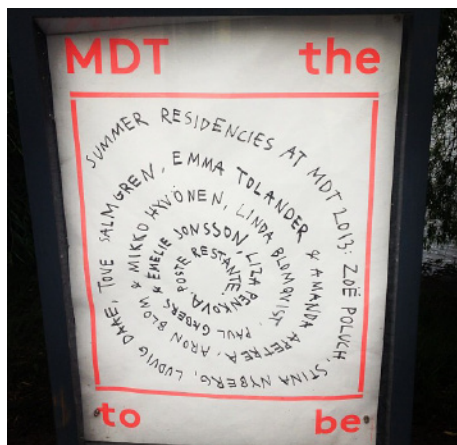 MDT the
SUMMER RESIDENCIES AT MDT 2013: ZOË POLUCH, STINA NYBERG, LUDVIG DAAE, TOVE SALMGREN, EMMA TOLANDER & AMANDA APETREA, ARON BLOM & MIKKO HYVÖNEN, LINDA BLOMQVIST, PAUL GADERS & EMELIE JONSSON, LIZA PENKOVA, POSTE RESTANTE.
to be